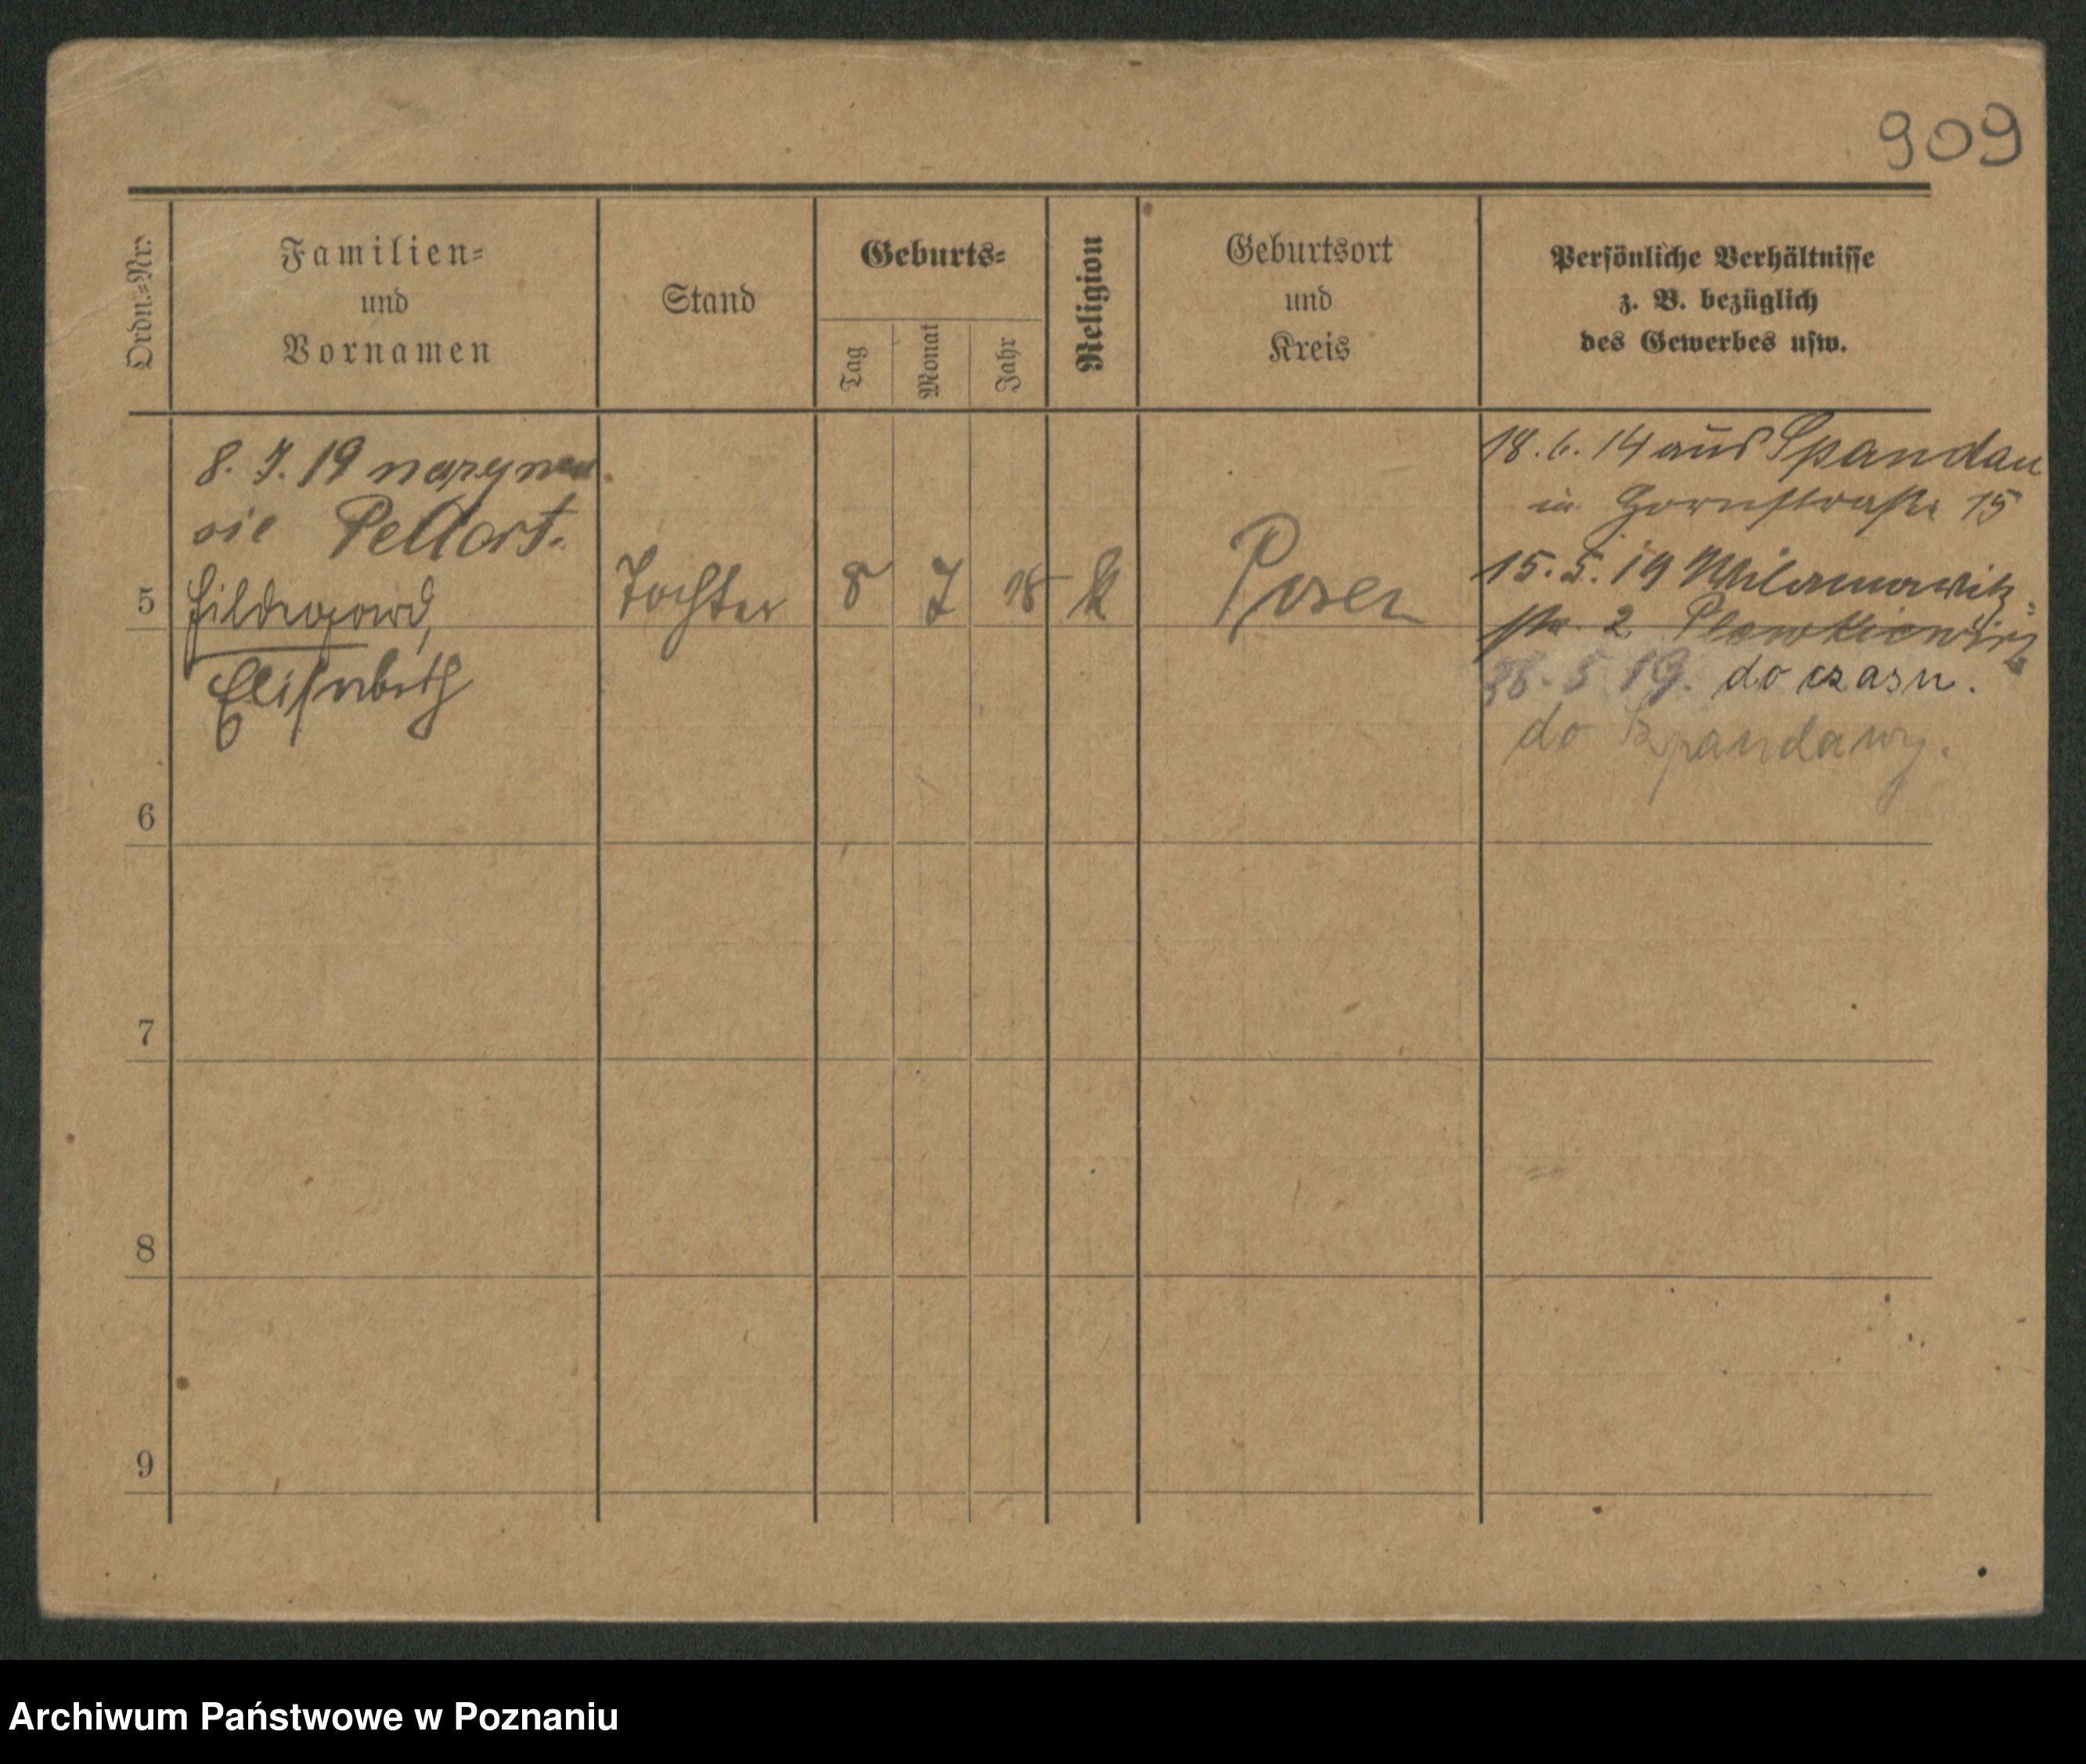 909
Ordn.-Nr.
Familien-
und
Vornamen
Stand
Geburts-
Tag
Monat
Jahr
Religion
Geburtsort
und
Kreis
Persönliche Verhältnisse
z. B. bezüglich
des Gewerbes usw.
8. 7. 19 nazywa
sie Pellart.
5 Hildegard, Tochter 8 7 18 k Posen
Elisabeth
18. 6. 14 aus Spandau
in Gornstraße 15
15. 5. 19 Wilamowitz
str. 2
5 19. do czasu.
do Szpandawy.
6
7
8
9
Archiwum Państwowe w Poznaniu